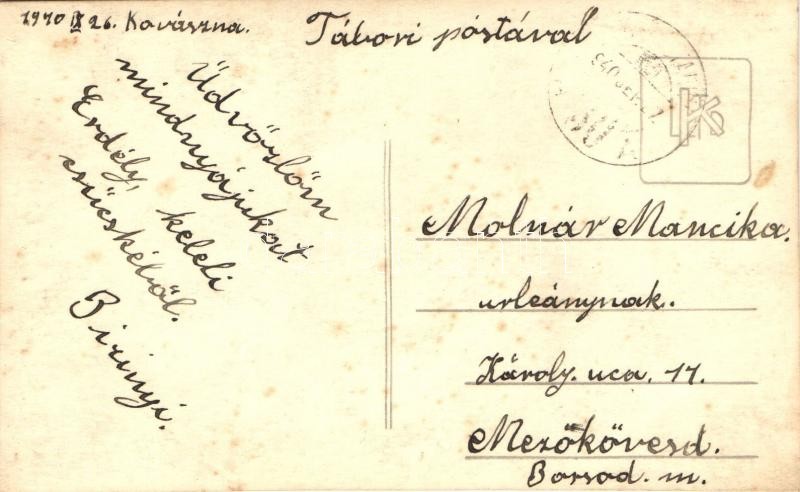 1940 IX 26. Kovászna.
Tábori póstával
Üdvözlöm
mindnyájukat
Erdély, keleti
csücskéből.
Birinyi.
Molnár Mancika.
urleánynak.
Károly. uca. 11.
Mezőkövesd.
Borsod. m.